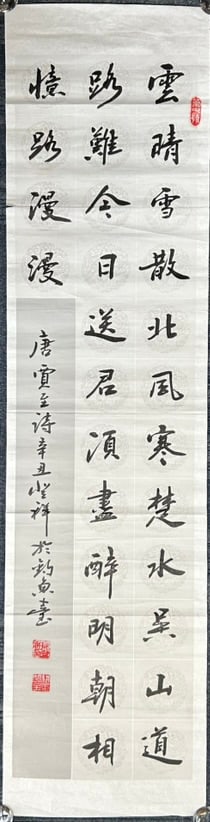 雲晴雪散北風寒楚水吳山道
路難今日送君湏盡醉明朝相
憶路漫漫
唐賈至詩辛丑登祥於釣魚臺